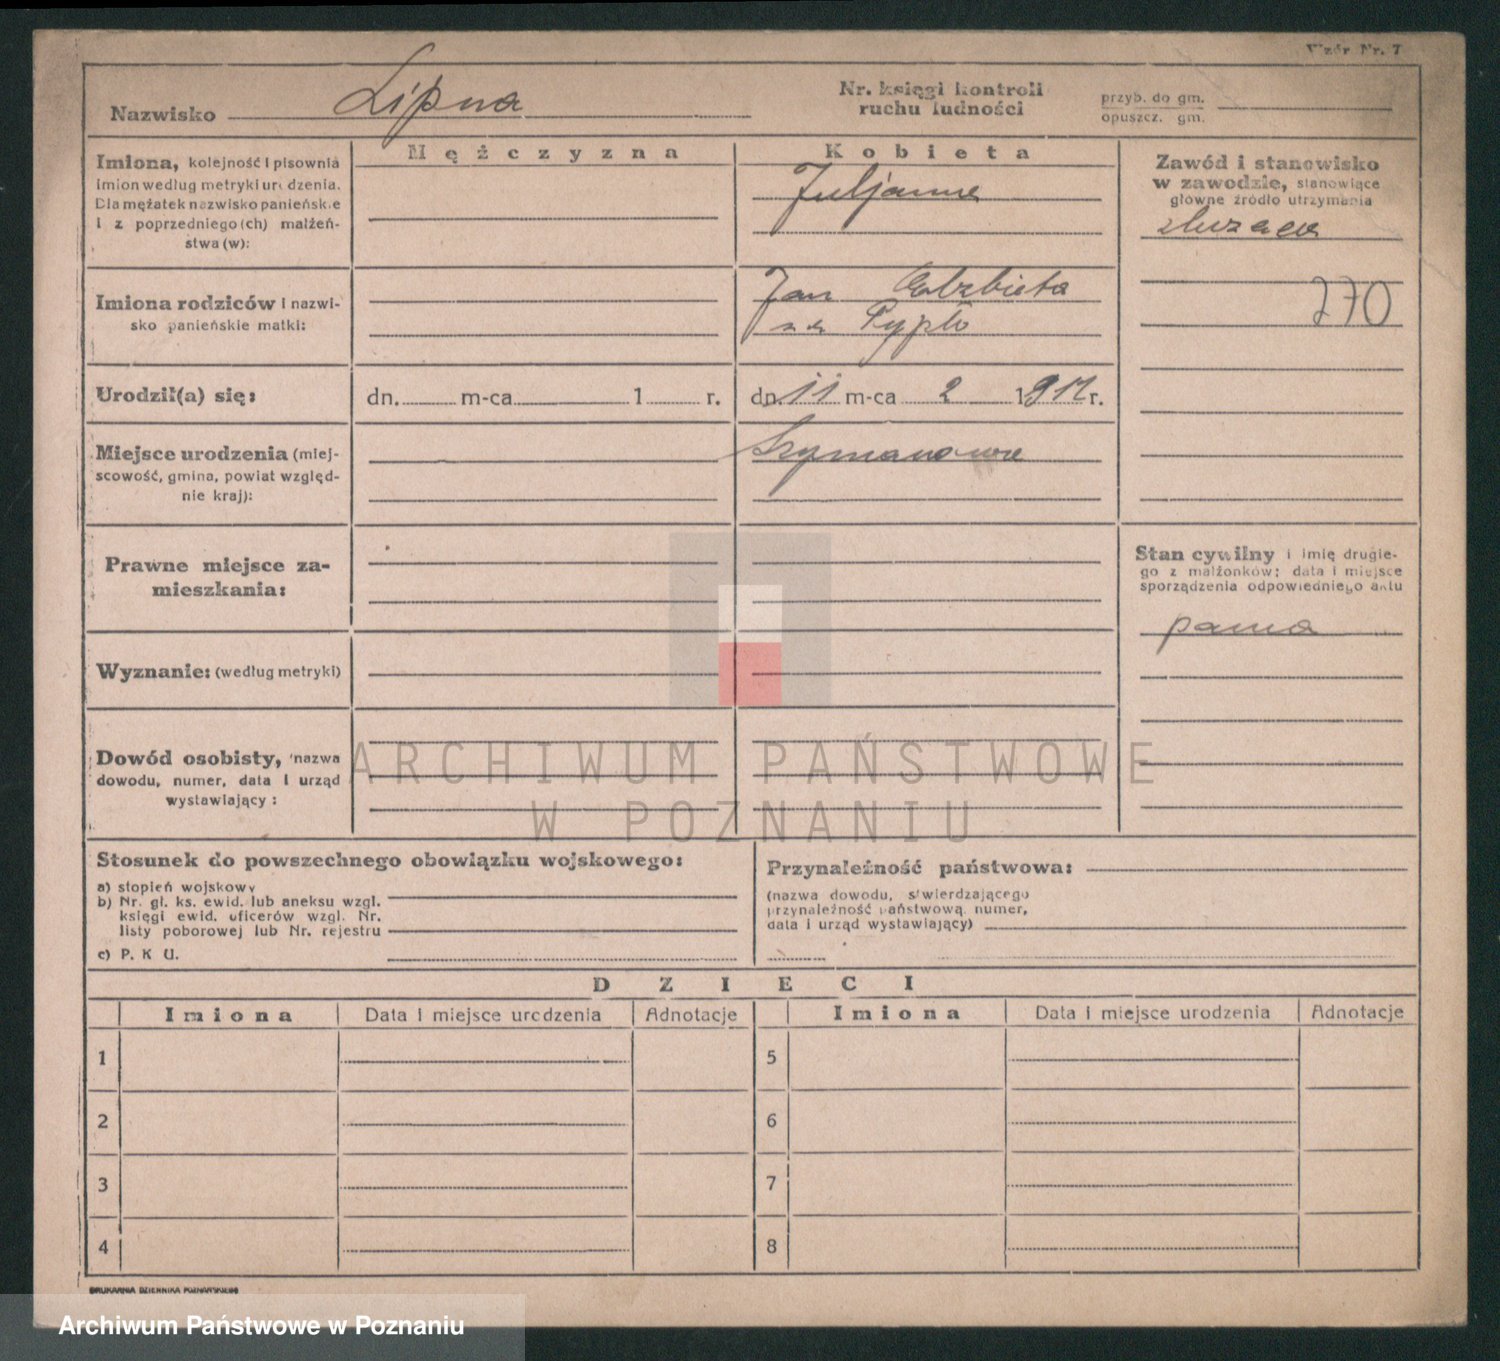 Wzór Nr. 7
Nazwisko Lipna
Nr. księgi kontroli
ruchu ludności
przyb. do gm.
opuszcz. gm.
Imiona, kolejność i pisownia
imion według metryki urodzenia.
Dla mężatek nazwisko panieńskie
i z poprzedniego (ch) małżeń-
stwa (w):
Mężczyzna
Kobieta
Juljanna
Zawód i stanowisko
w zawodzie, stanowiące
główne źródło utrzymania
służąca
270
Imiona rodziców i nazwi-
sko panieńskie matki:
Jan Elżbieta
Urodził(a) się:
dn. m-ca 1 r.
dn. 11 m-ca 2 1912 r.
Miejsce urodzenia (miej-
scowość, gmina, powiat względ-
nie kraj):
Szymanowo
Prawne miejsce za-
mieszkania:
Stan cywilny i imię drugie-
go z małżonków; data i miejsce
sporządzenia odpowiedniego aktu
panna
Wyznanie: (według metryki)
Dowód osobisty, nazwa
dowodu, numer, data i urząd
wystawiający:
ARCHIWUM PAŃSTWOWE
W POZNANIU
Stosunek do powszechnego obowiązku wojskowego:
a) stopień wojskowy
b) Nr. gł. ks. ewid. lub aneksu wzgl.
księgi ewid. oficerów wzgl. Nr.
listy poborowej lub Nr. rejestru
c) P. K U.
Przynależność państwowa:
(nazwa dowodu, stwierdzającego
przynależność państwową, numer,
data i urząd wystawiający)
DZIECI
Imiona Data i miejsce urodzenia Adnotacje Imiona Data i miejsce urodzenia Adnotacje
1 5
2 6
3 7
4 8
DRUKARNIA DZIENNIKA POZNAŃSKIEGO
Archiwum Państwowe w Poznaniu